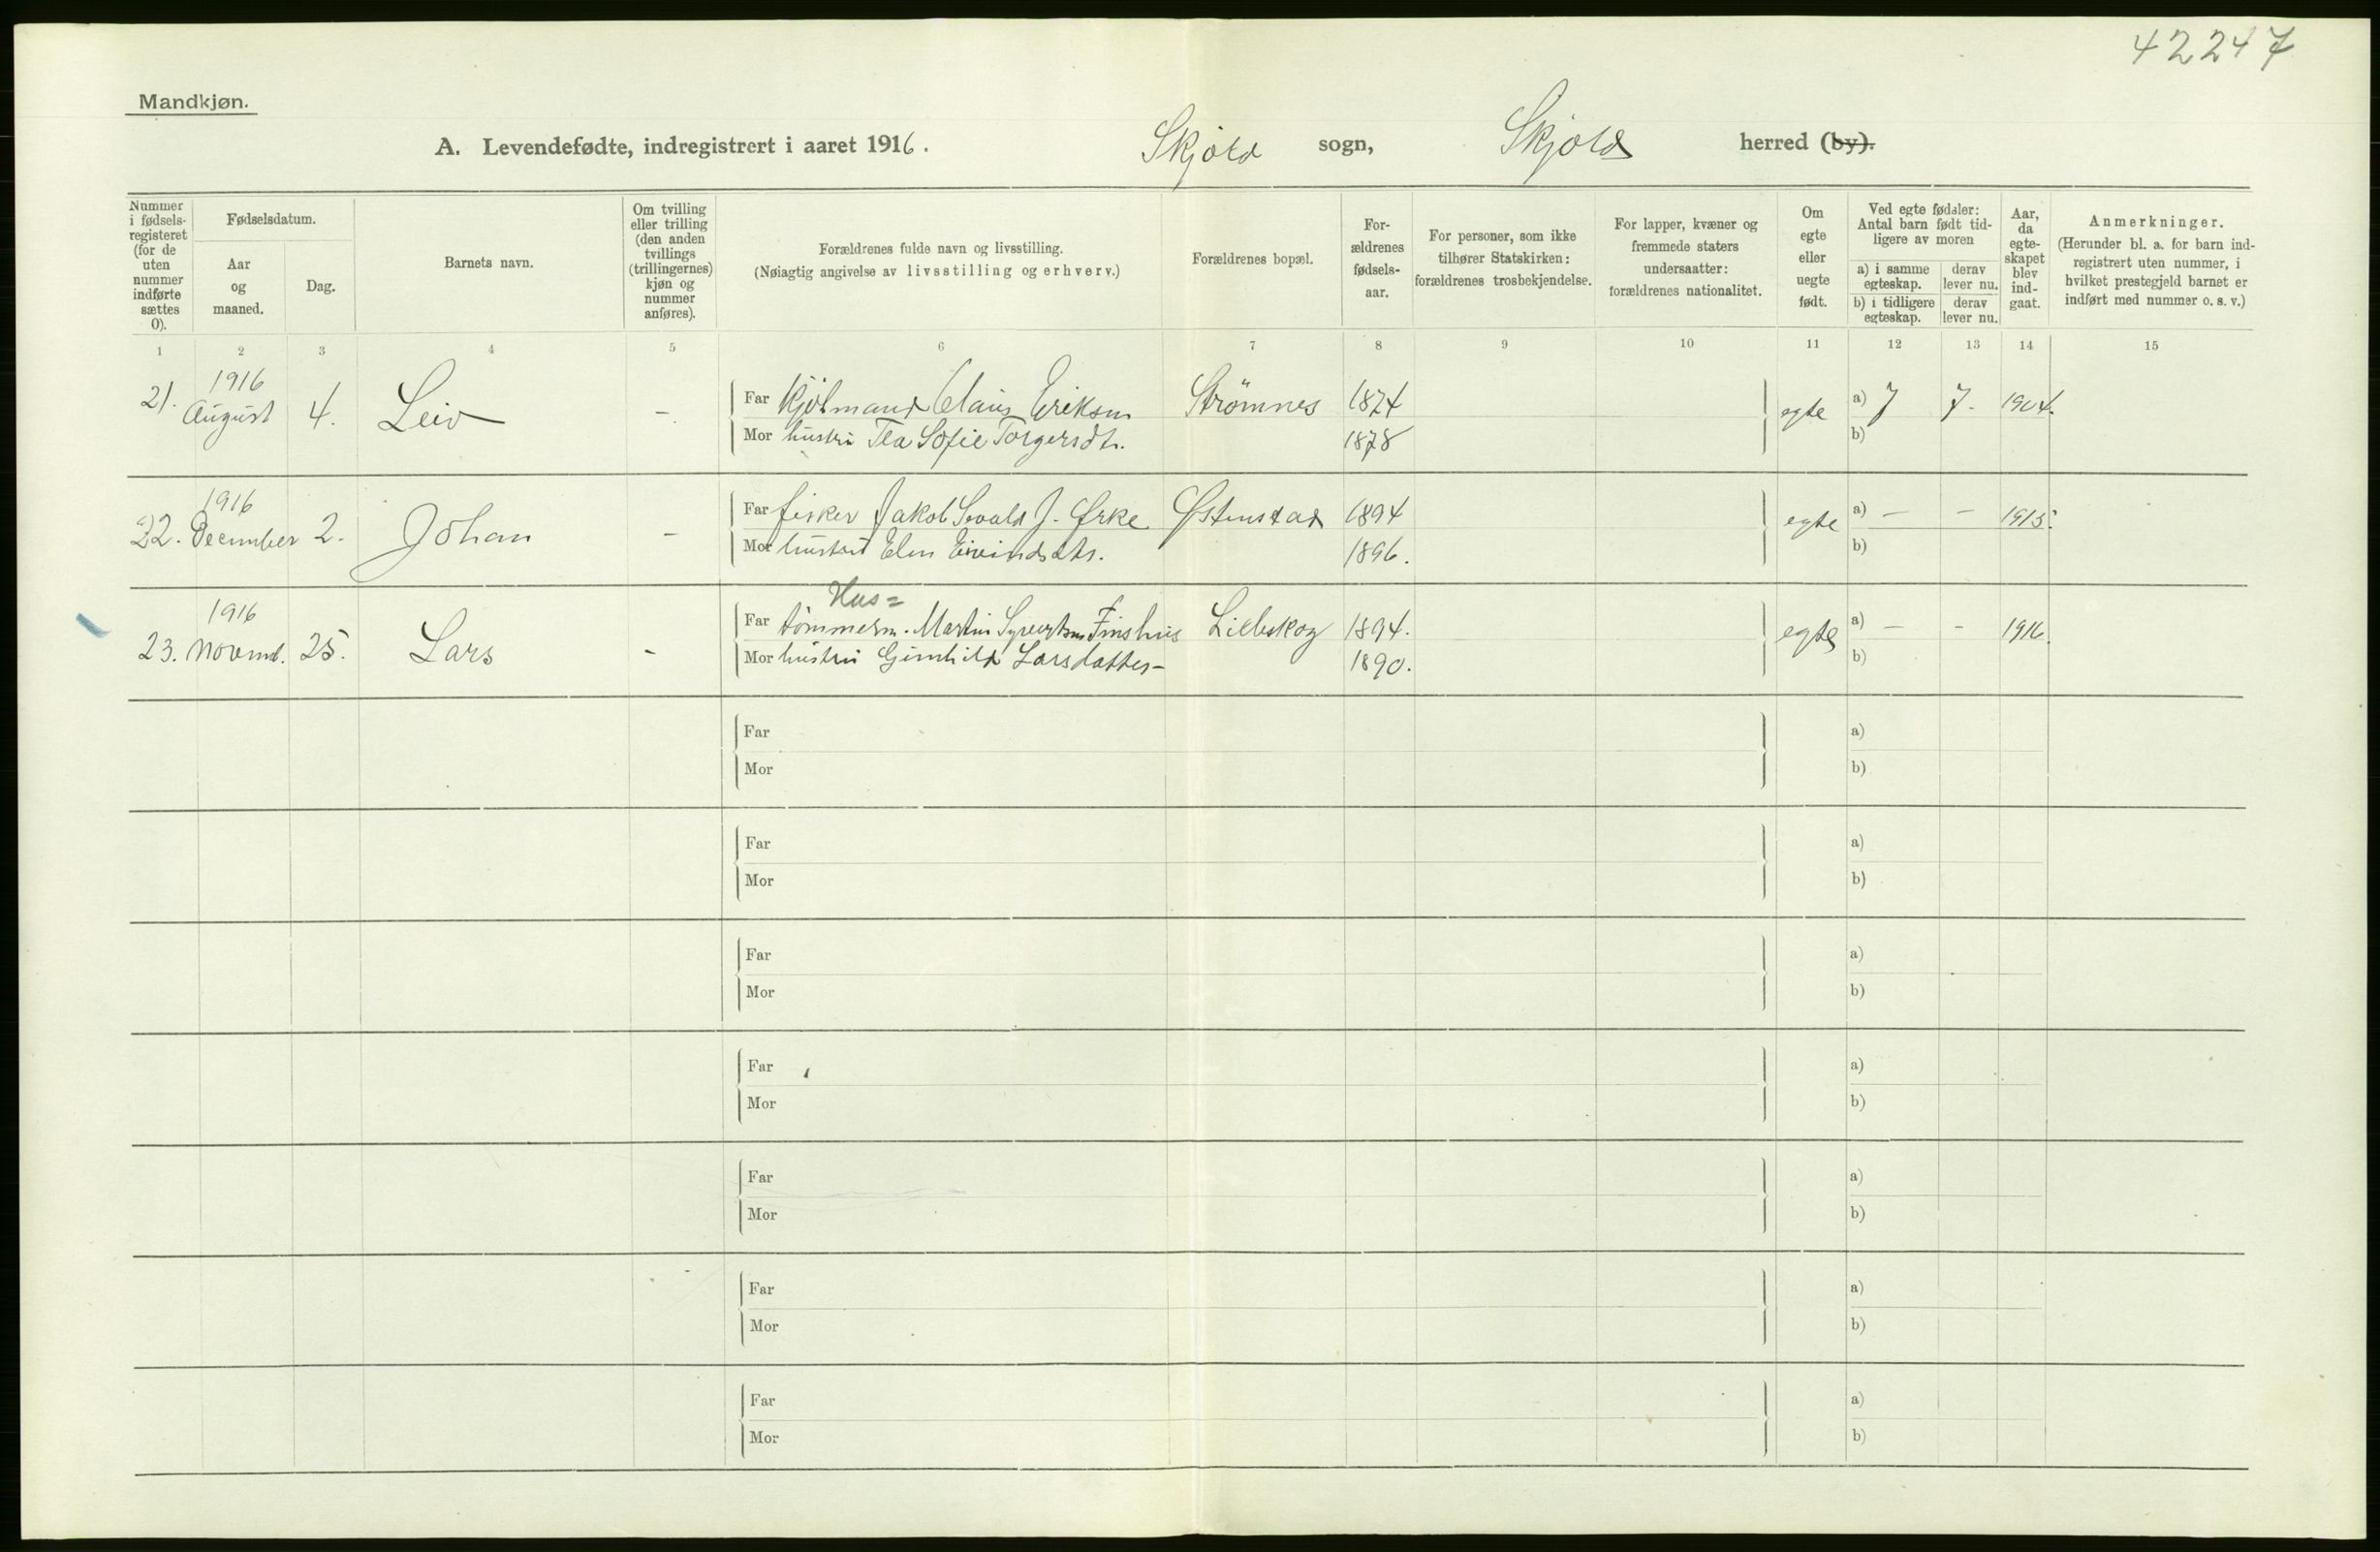 42247
Mandkjøn.
A. Levendefødte, indregistrert i aaret 1916. Skjold sogn, Skjold herred (by).
Nummer i fødsels-registeret (for de uten nummer indførte sættes 0).
Fødselsdatum.
Aar og maaned.
Dag.
Barnets navn.
Om tvilling eller trilling (den anden tvillings (trillingernes) kjøn og nummer anføres).
Forældrenes fulde navn og livsstilling.
(Nøiagtig angivelse av livsstilling og erhverv.)
Forældrenes bopæl.
For-ældrenes fødsels-aar.
For personer, som ikke tilhører Statskirken: forældrenes trosbekjendelse.
For lapper, kvæner og fremmede staters undersaatter: forældrenes nationalitet.
Om egte eller uegte født.
Ved egte fødsler: Antal barn født tid-ligere av moren
a) i samme egteskap.
derav lever nu.
b) i tidligere egteskap.
derav lever nu.
Aar, da egte-skapet blev ind-gaat.
Anmerkninger.
(Herunder bl. a. for barn ind-registrert uten nummer, i hvilket prestegjeld barnet er indført med nummer o. s. v.)
1 2 3 4 5 6 7 8 9 10 11 12 13 14 15
21. 1916 August 4. Leiv - Far Claus Eriksen Strømnes 1874 egte a) 7 7. 1904.
Mor hustru Tea Sofie Torgersdtr. 1878 b)
22. 1916 December 2. Johan - Far fisker Jakob Sevald J. Ørke Østenstad 1894 egte a) - - 1915.
Mor hustru Elen Eivindsdtr. 1896. b)
Hus=
23. 1916 Novemb. 25. Lars - Far tømmerm. Martin Syvertsen Finshus Lilleskog 1894. egte a) - - 1916.
Mor hustru Gunhild Larsdatter- 1890. b)
Far a)
Mor b)
Far a)
Mor b)
Far a)
Mor b)
Far a)
Mor b)
Far a)
Mor b)
Far a)
Mor b)
Far a)
Mor b)